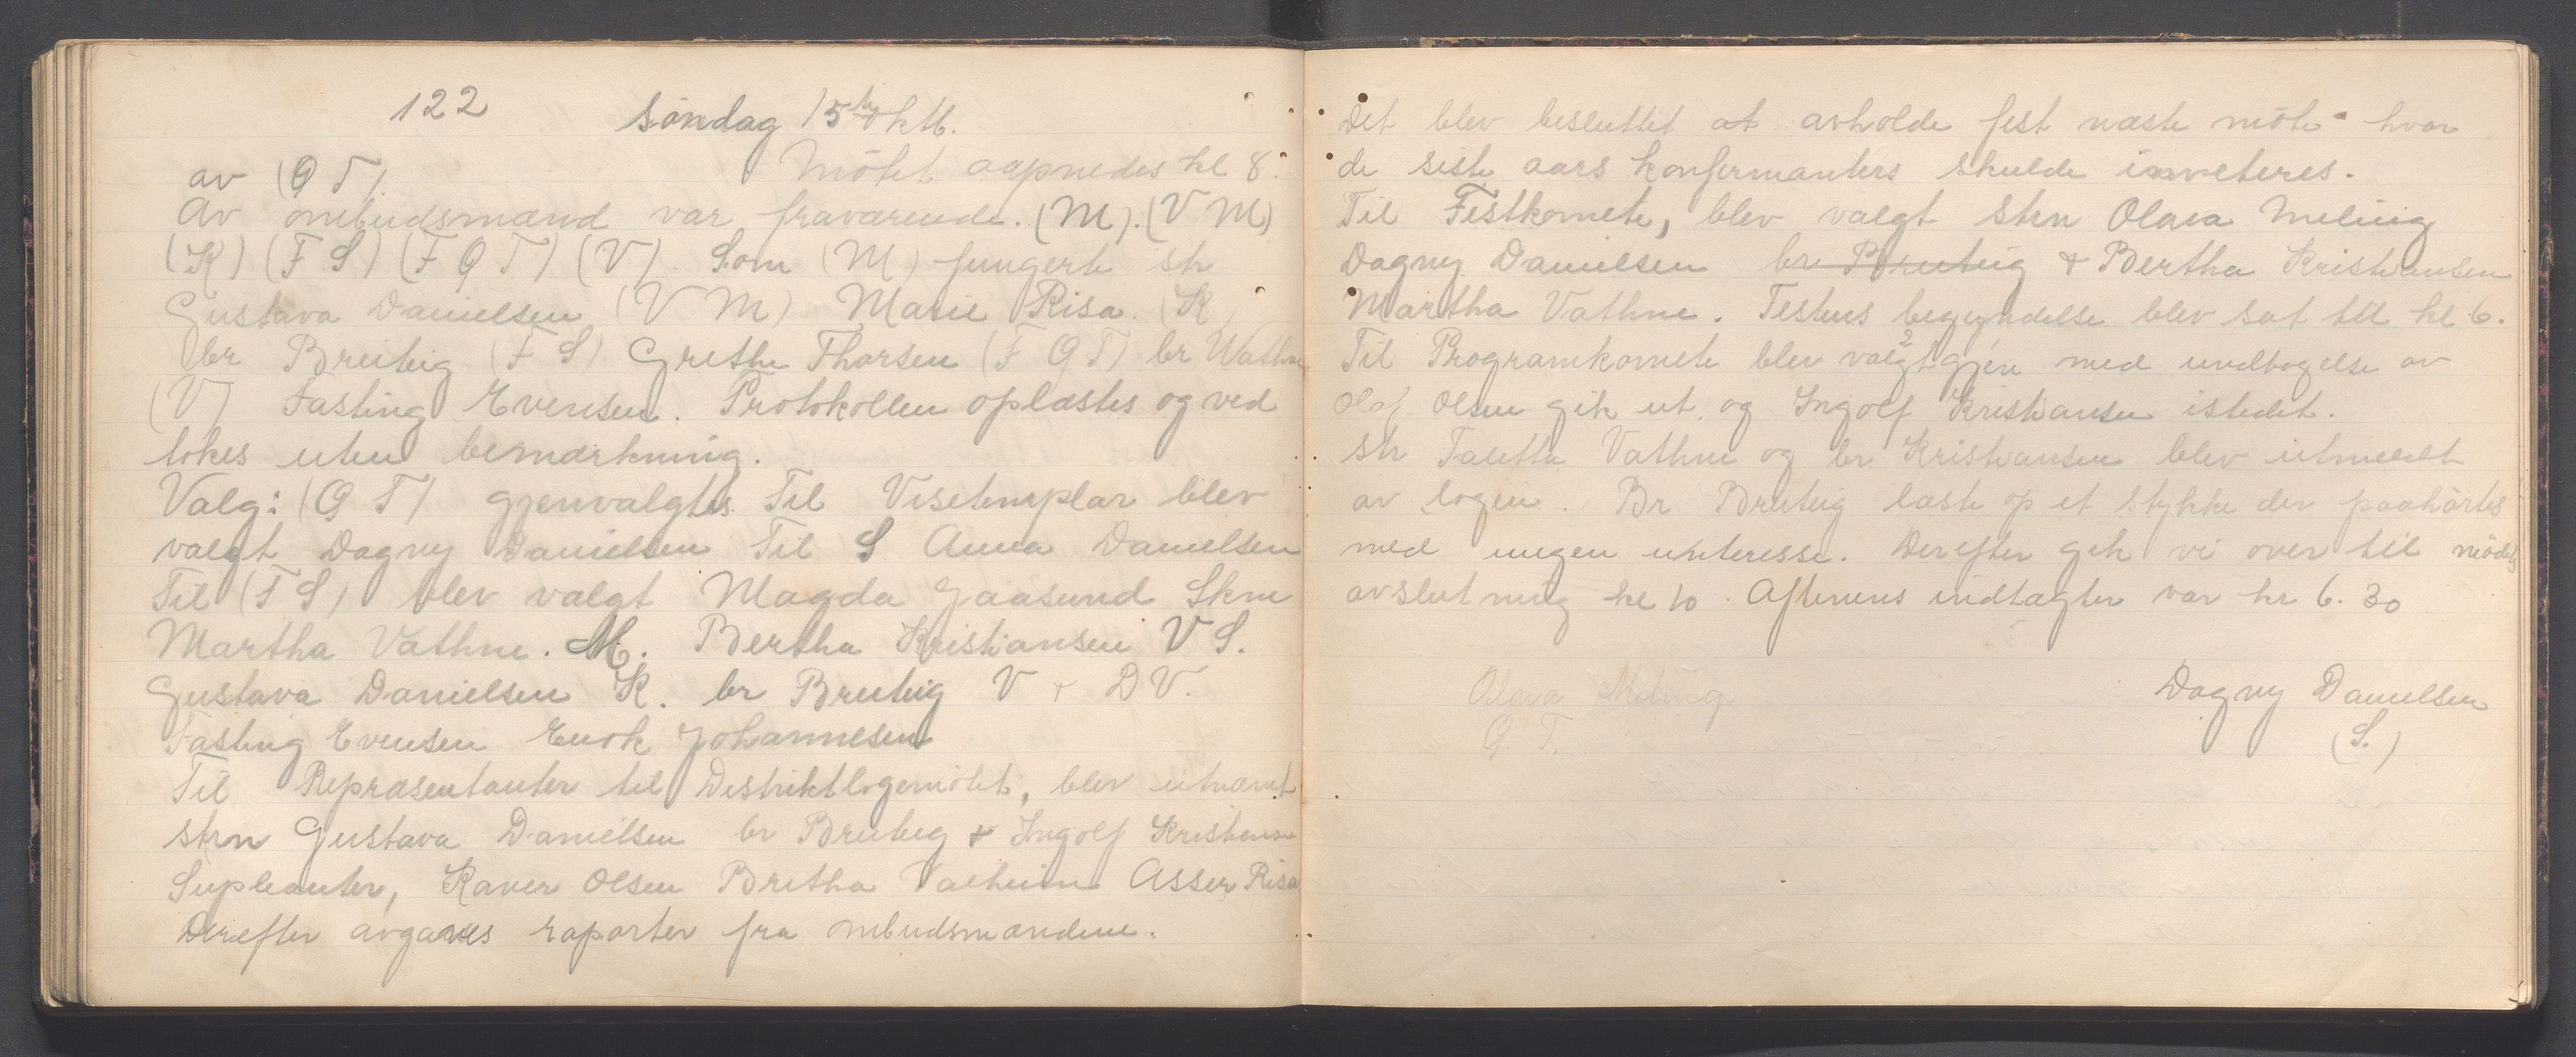 122 Søndag 15de oktb.
Møtet aapnedes kl 8.
av (G T).
Av ombudsmænd var fraværende. (M). (V M)
(K) (F S) (F G T) (V). Som (M) fungerte str
Gustava Danielsen (V M) Marie Risa. (K
br Breiteig (F S) Grethe Thorsen (F G T) br Wathne
(V) Fasting Evensen. Protokollen oplæstes og ved
tokes uten bemærkning.
Valg: (G T) gjenvalgtes. Til Visetemplar blev
valgt Dagny Danielsen Til S Anna Danielsen
Til (F S) blev valgt Magda Gaasund Skm
Martha Vathne. M. Bertha Kristiansen V S.
Gustava Danielsen K. br Breiteig V + D V.
Fasting Evensen Enok Johannesen
Til Repræsentanter til Distriktlogemøtet, blev utnævnt
strn Gustava Danielsen br Breiteig & Ingolf Kristiansen
Supleanter, Kaver Olsen Bretha Asser Risa
Derefter avgaves raporter fra ombudsmændene.
Det blev besluttet at avholde fest næste møte hvor
de siste aars konfermanters skulde inveteres.
Til Festkomete, blev valgt strn Olava Meling
Dagny Danielsen br Breiteig & Bertha Kristiansen
Martha Vathne. Festens begyndelse blev sat til kl 6.
Til Programkomete blev valgt gjen med undtagelse av
Olaf Olsen gik ut, og Ingolf Kristiansen istedet.
str Taletta Vathne og br Kristiansen blev utmeldt
av logen. Br Breiteig læste op et stykke der paahørtes
med megen interesse. Derefter gik vi over til mødets
avslutning kl 10. Aftenens indtægter var kr 6.30
Olava Meling
G. T.
Dagny Danielsen
(S.)